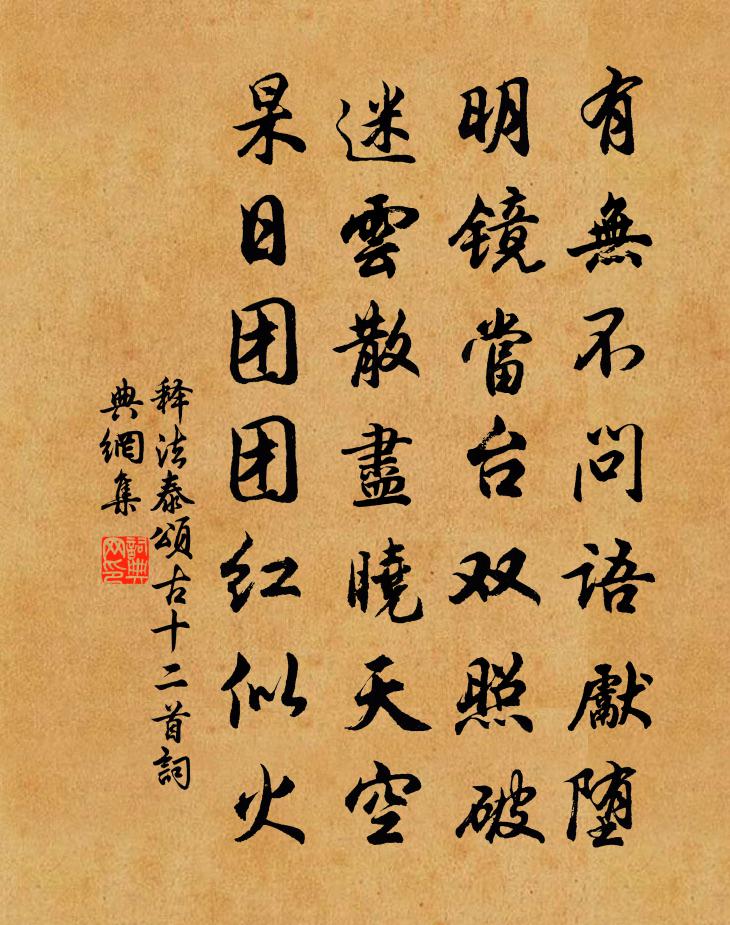 有無不問語獻堕
明镜當台双照破
迷雲散盡曉天空
杲日团团红似火
释法泰頌古十二首詞
典網集
詞典
网印